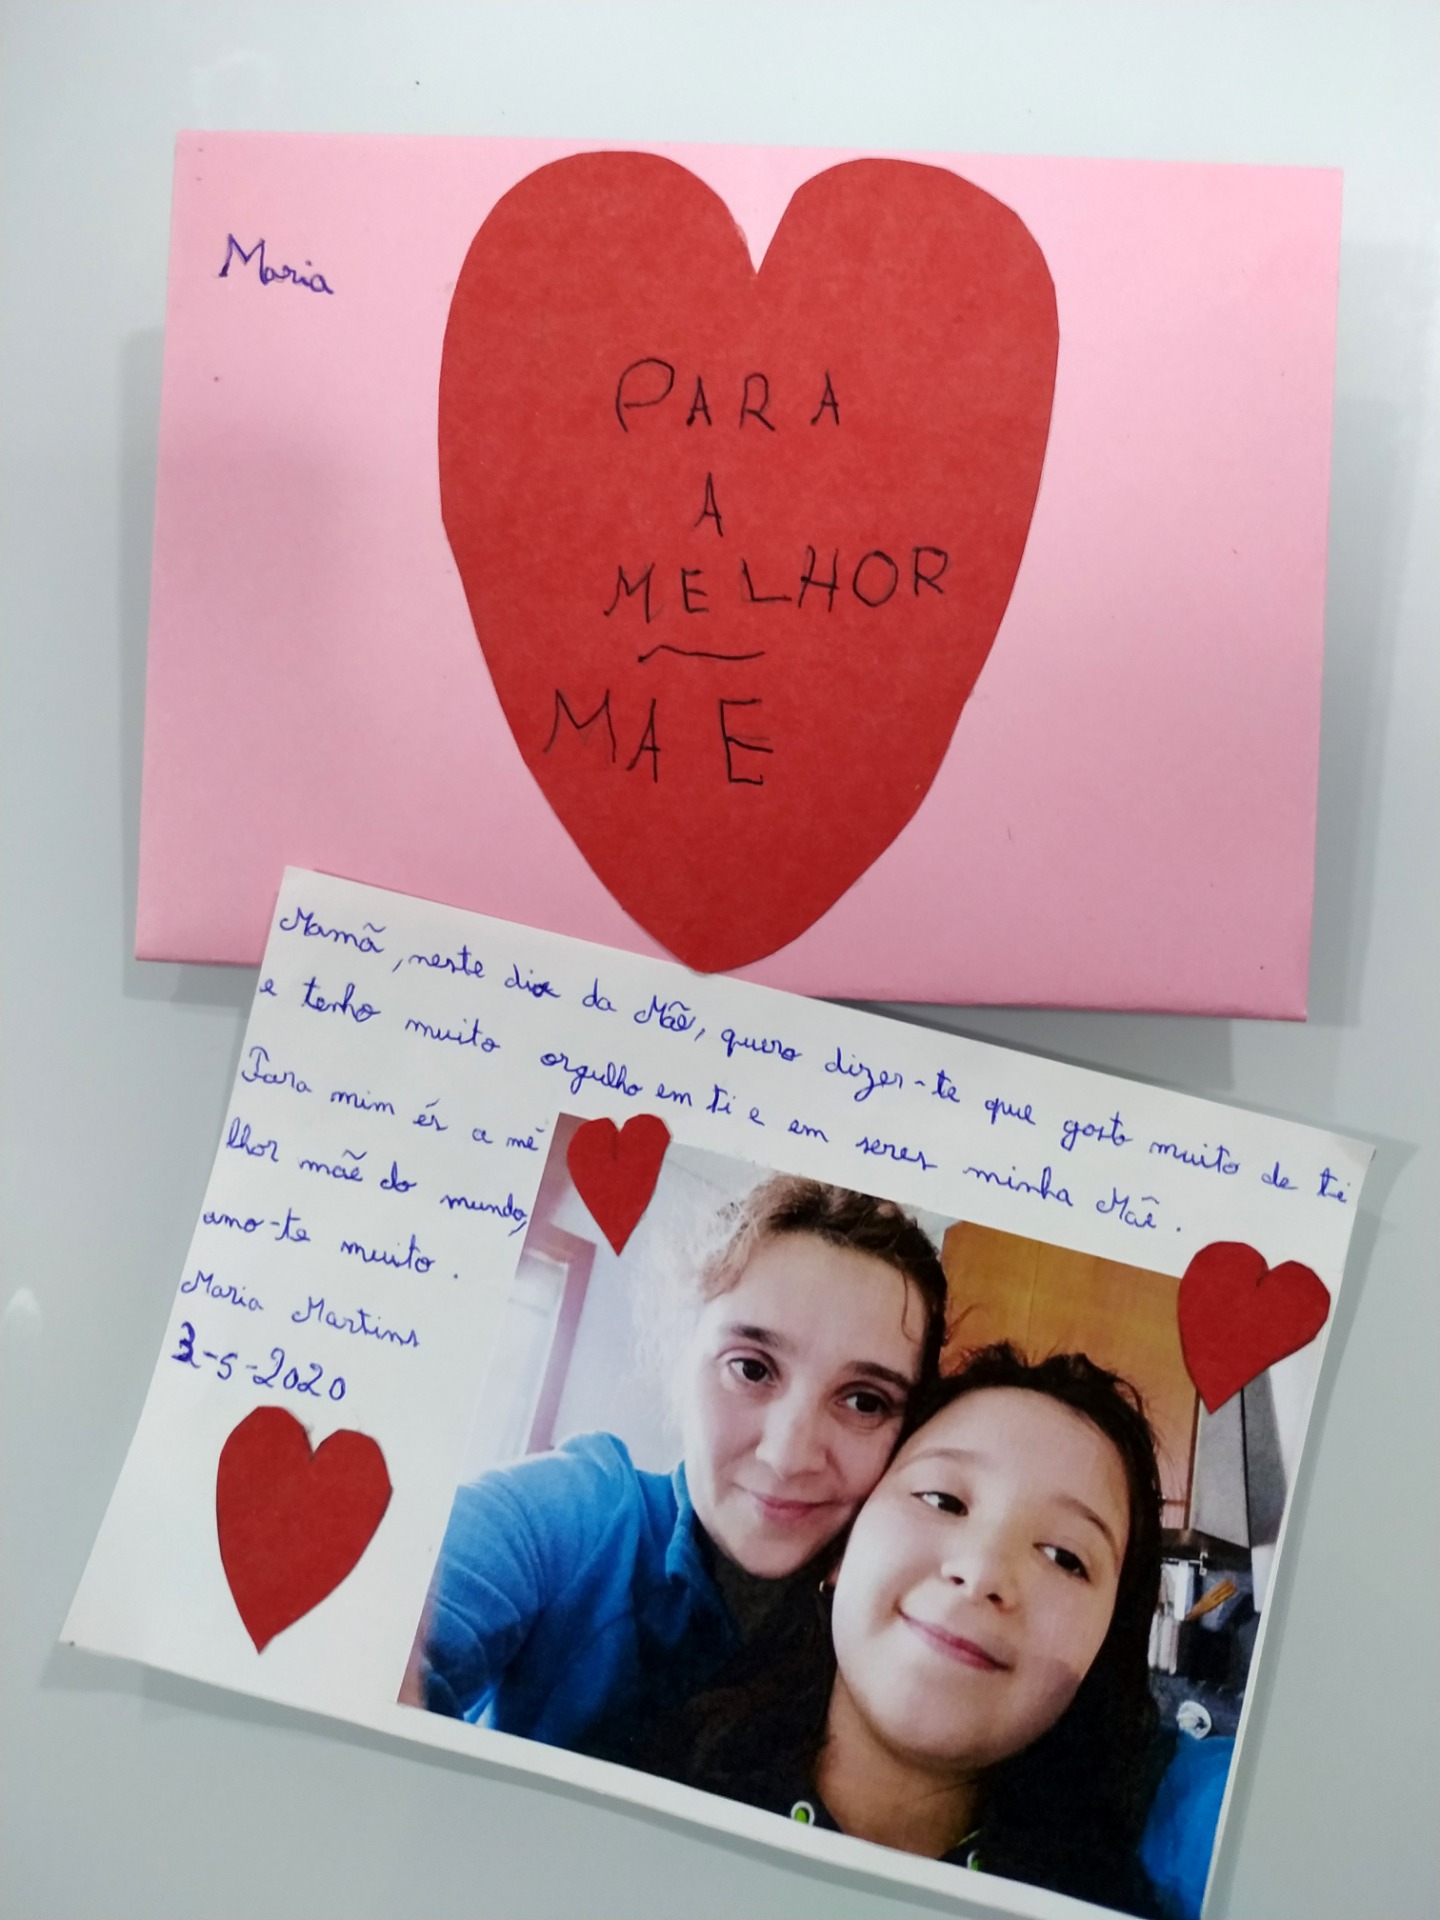 Maria
PARA
A
MELHOR
MÃE
Mamã, neste dia da Mãe, quero dizer-te que gosto muito de ti
e tenho muito orgulho em ti e em seres minha Mãe.
Para mim és a me-
lhor mãe do mundo,
amo-te muito.
Maria Martins
3-5-2020